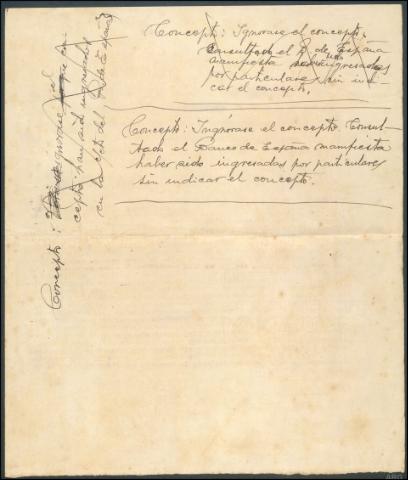 Concepto: Ignorase el concepto.
Consultado el B de España
manifiesta haber sido ingresadas
por particulares sin indi-
car el concepto.
Concepto: Ingnórase el concepto. Consul-
tado el Banco de España manifiesta
haber sido ingresadas por particulares
sin indicar el concepto.
Concepto: ignorase el
cepto: han sido ingresados
en la cta del Bco de España